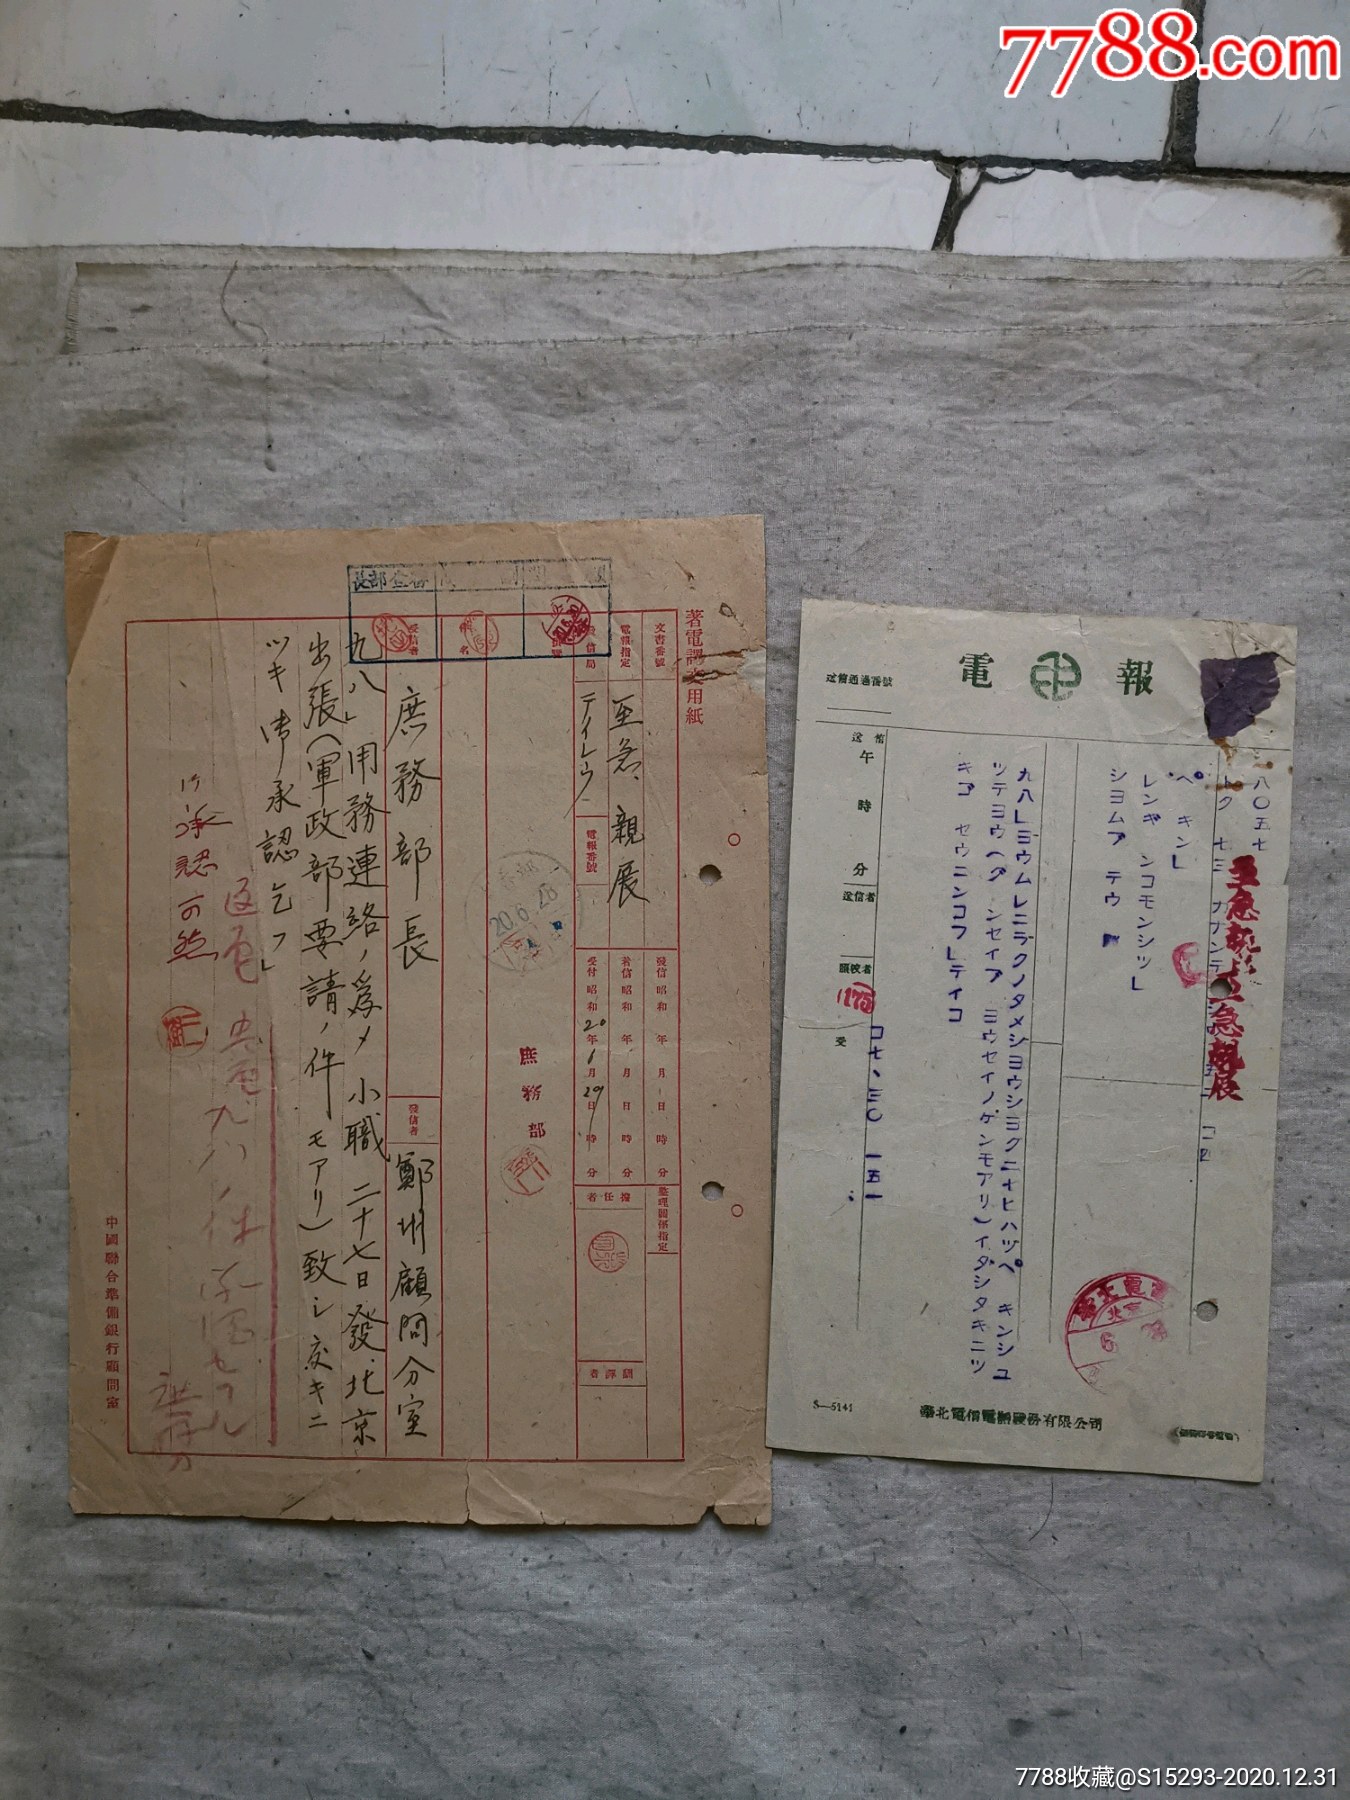 7788.com
著電譯文用紙
文書番號
電報指定
至急、親展
發信局
テイレウ
電報番號
發信昭和 年 月 日 時 分
着信昭和 年 月 日 時 分
受付昭和20年6月29日 時 分
整理關係指定
擔任者
飜譯者
長部
20.6.28
庶務部
受信者
庶務部長
發信者
鄭州顧問分室
九八」用務連絡ノ爲メ小職二十七日發北京
出張(軍政部要請ノ件モアリ)致シ度キニ
ツキ御承認乞フ」
承認可然
返電
中國聯合準備銀行顧問室
電報
送信通過番號
送信
午
時
分
送信者
領收者
受
八〇五七
至急親展
至急親展
ペキン」
レンギンコモンシツ」
シヨムブテウ
九八」ヨウムレンラクノタメシヨウシヨク二十七ヒハツペキンシユ
ツテヨウヘグンセイブヨウセイノケンモアリ)イタシタキニツ
キゴセウニンコフ」テイコ
コ七・三〇 一五一
北京
6 28
S—5141
華北電信電話股份有限公司
7788收藏@S15293-2020.12.31